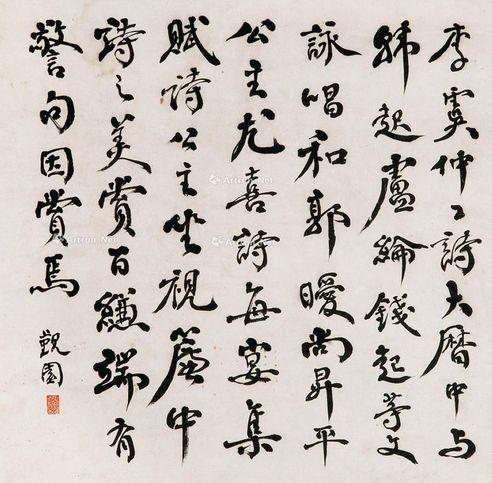 李虞仲工詩大曆中与
韩起盧綸錢起等文
詠唱和郭曖尚昇平
公主尤喜詩每宴集
賦詩公主坐視簾中
詩之美賞百縑端有
警句因賞焉
Artron.Net